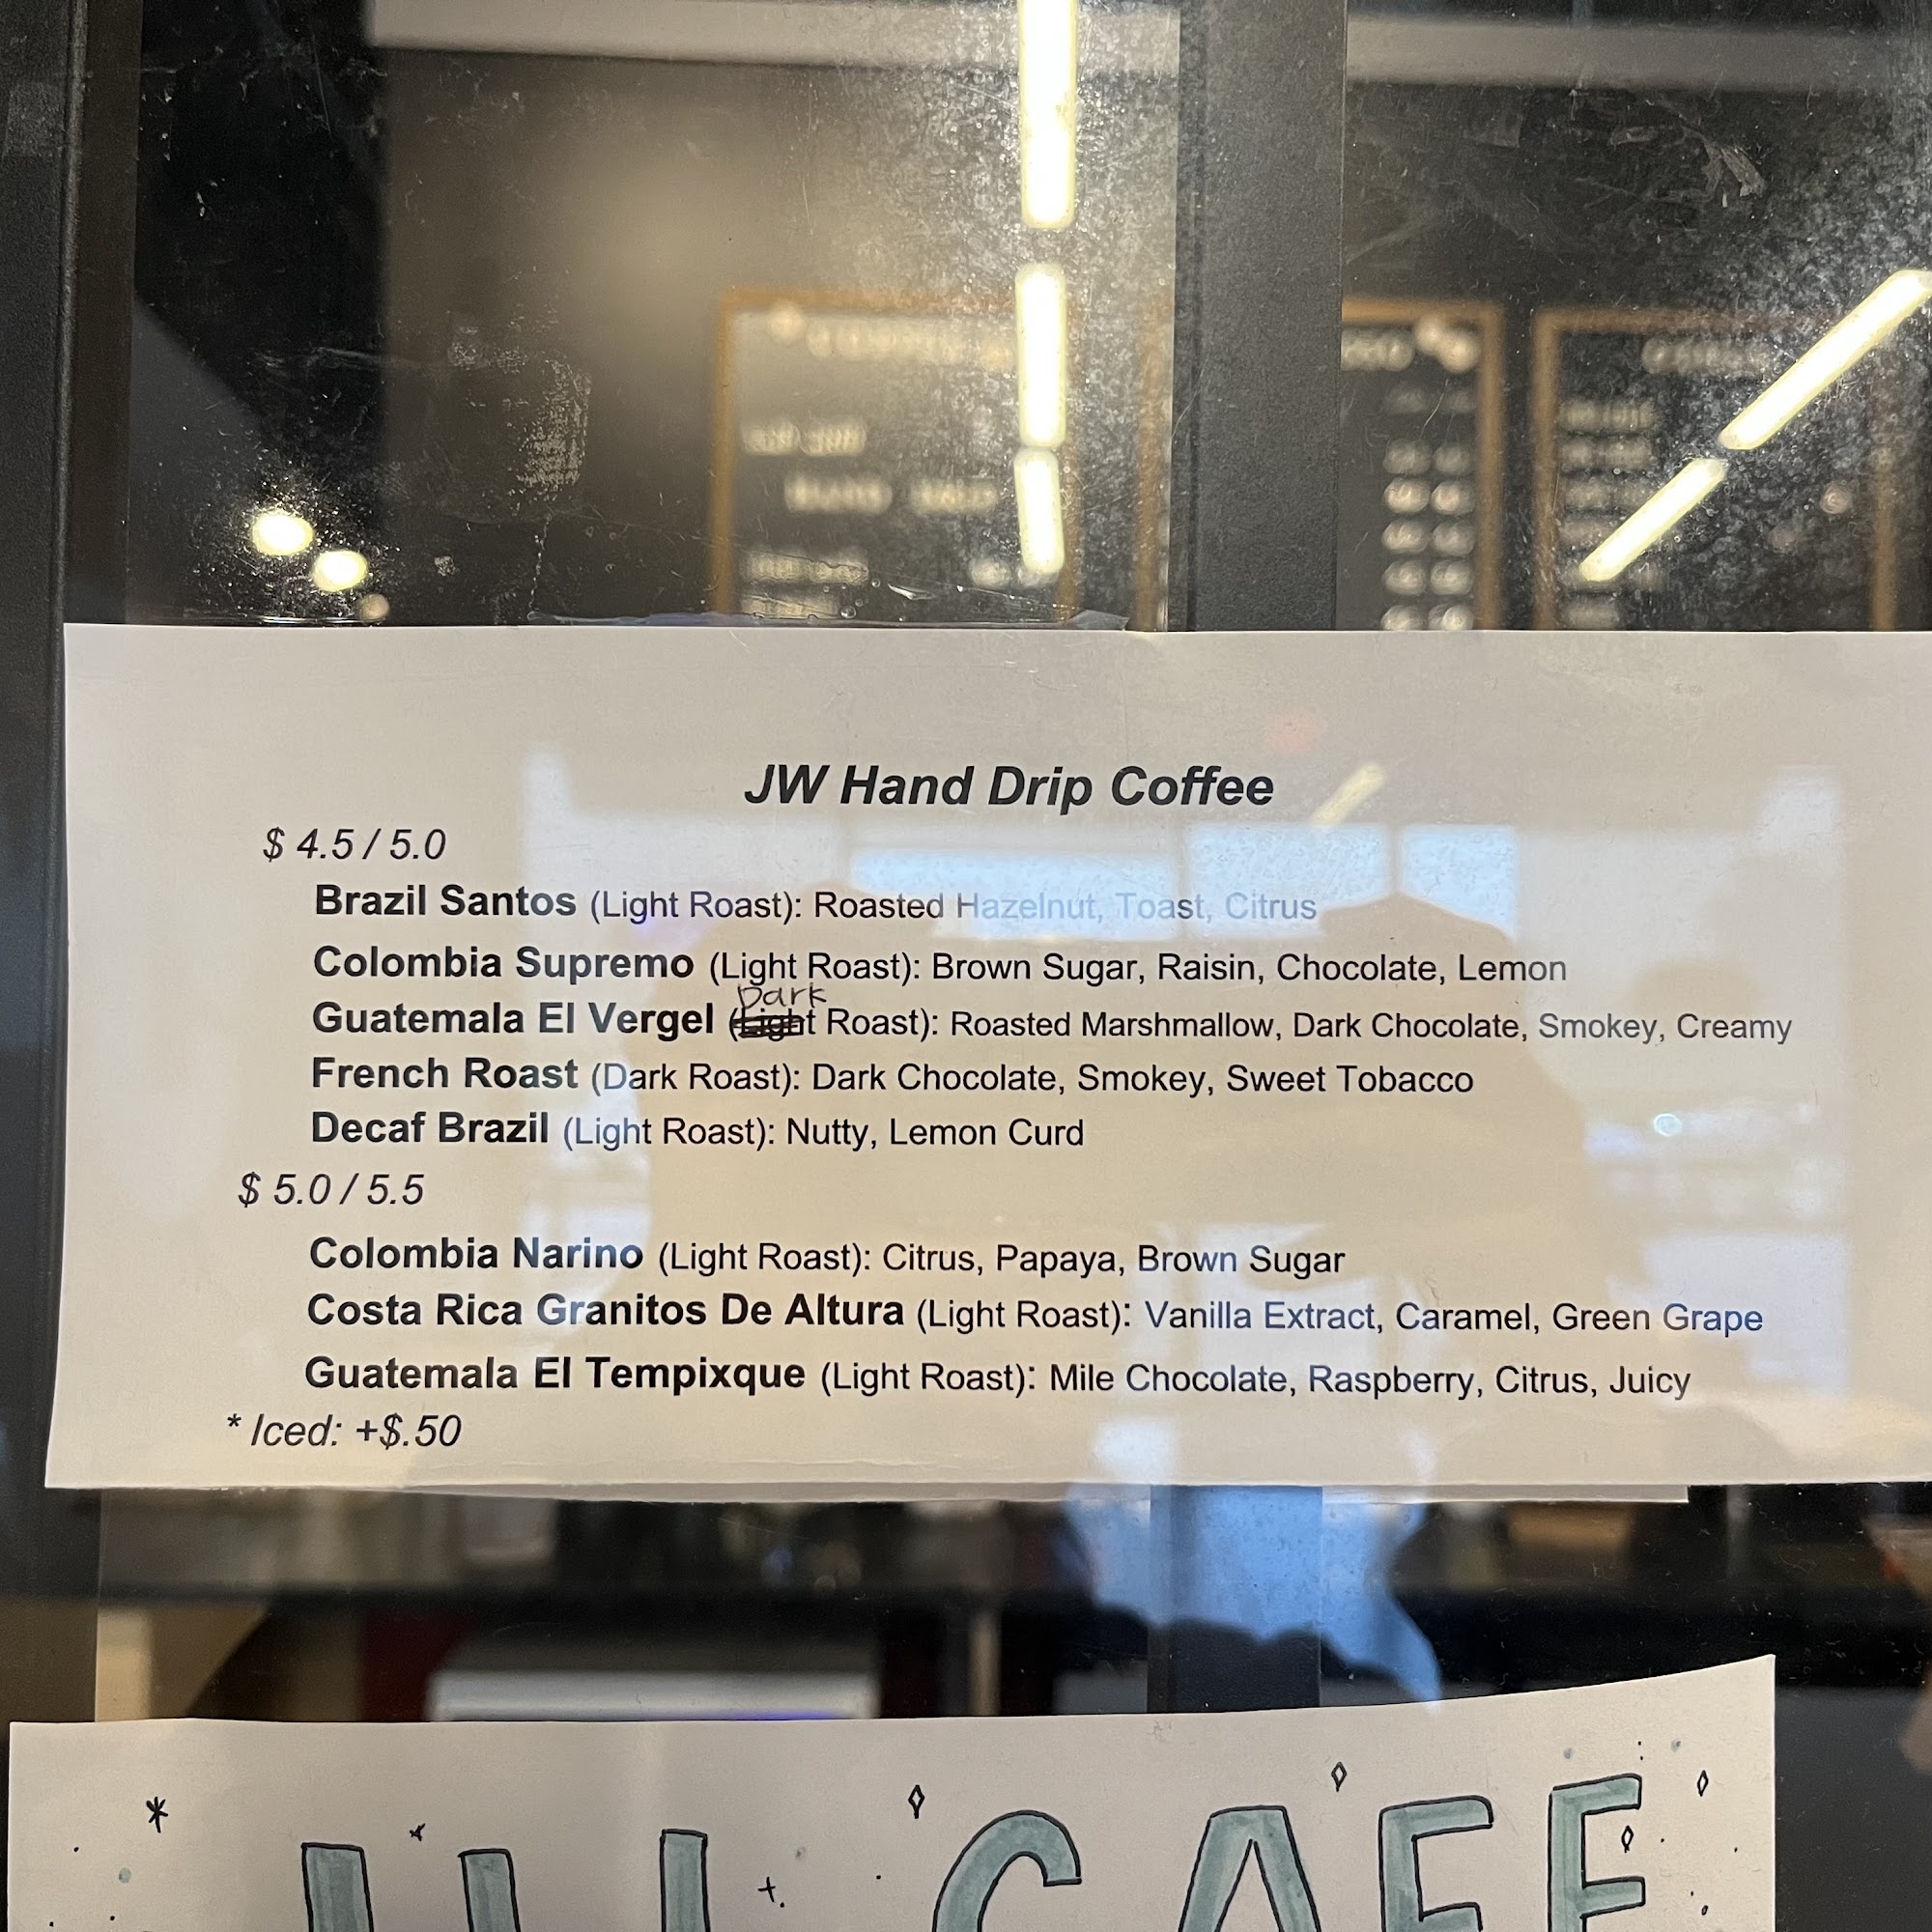 JW Hand Drip Coffee
$ 4.5 / 5.0
Brazil Santos (Light Roast): Roasted Hazelnut, Toast, Citrus
Colombia Supremo (Light Roast): Brown Sugar, Raisin, Chocolate, Lemon
Dark
Guatemala El Vergel (Light Roast): Roasted Marshmallow, Dark Chocolate, Smokey, Creamy
French Roast (Dark Roast): Dark Chocolate, Smokey, Sweet Tobacco
Decaf Brazil (Light Roast): Nutty, Lemon Curd
$ 5.0 / 5.5
Colombia Narino (Light Roast): Citrus, Papaya, Brown Sugar
Costa Rica Granitos De Altura (Light Roast): Vanilla Extract, Caramel, Green Grape
Guatemala El Tempixque (Light Roast): Mile Chocolate, Raspberry, Citrus, Juicy
* Iced: +$.50
CAFE